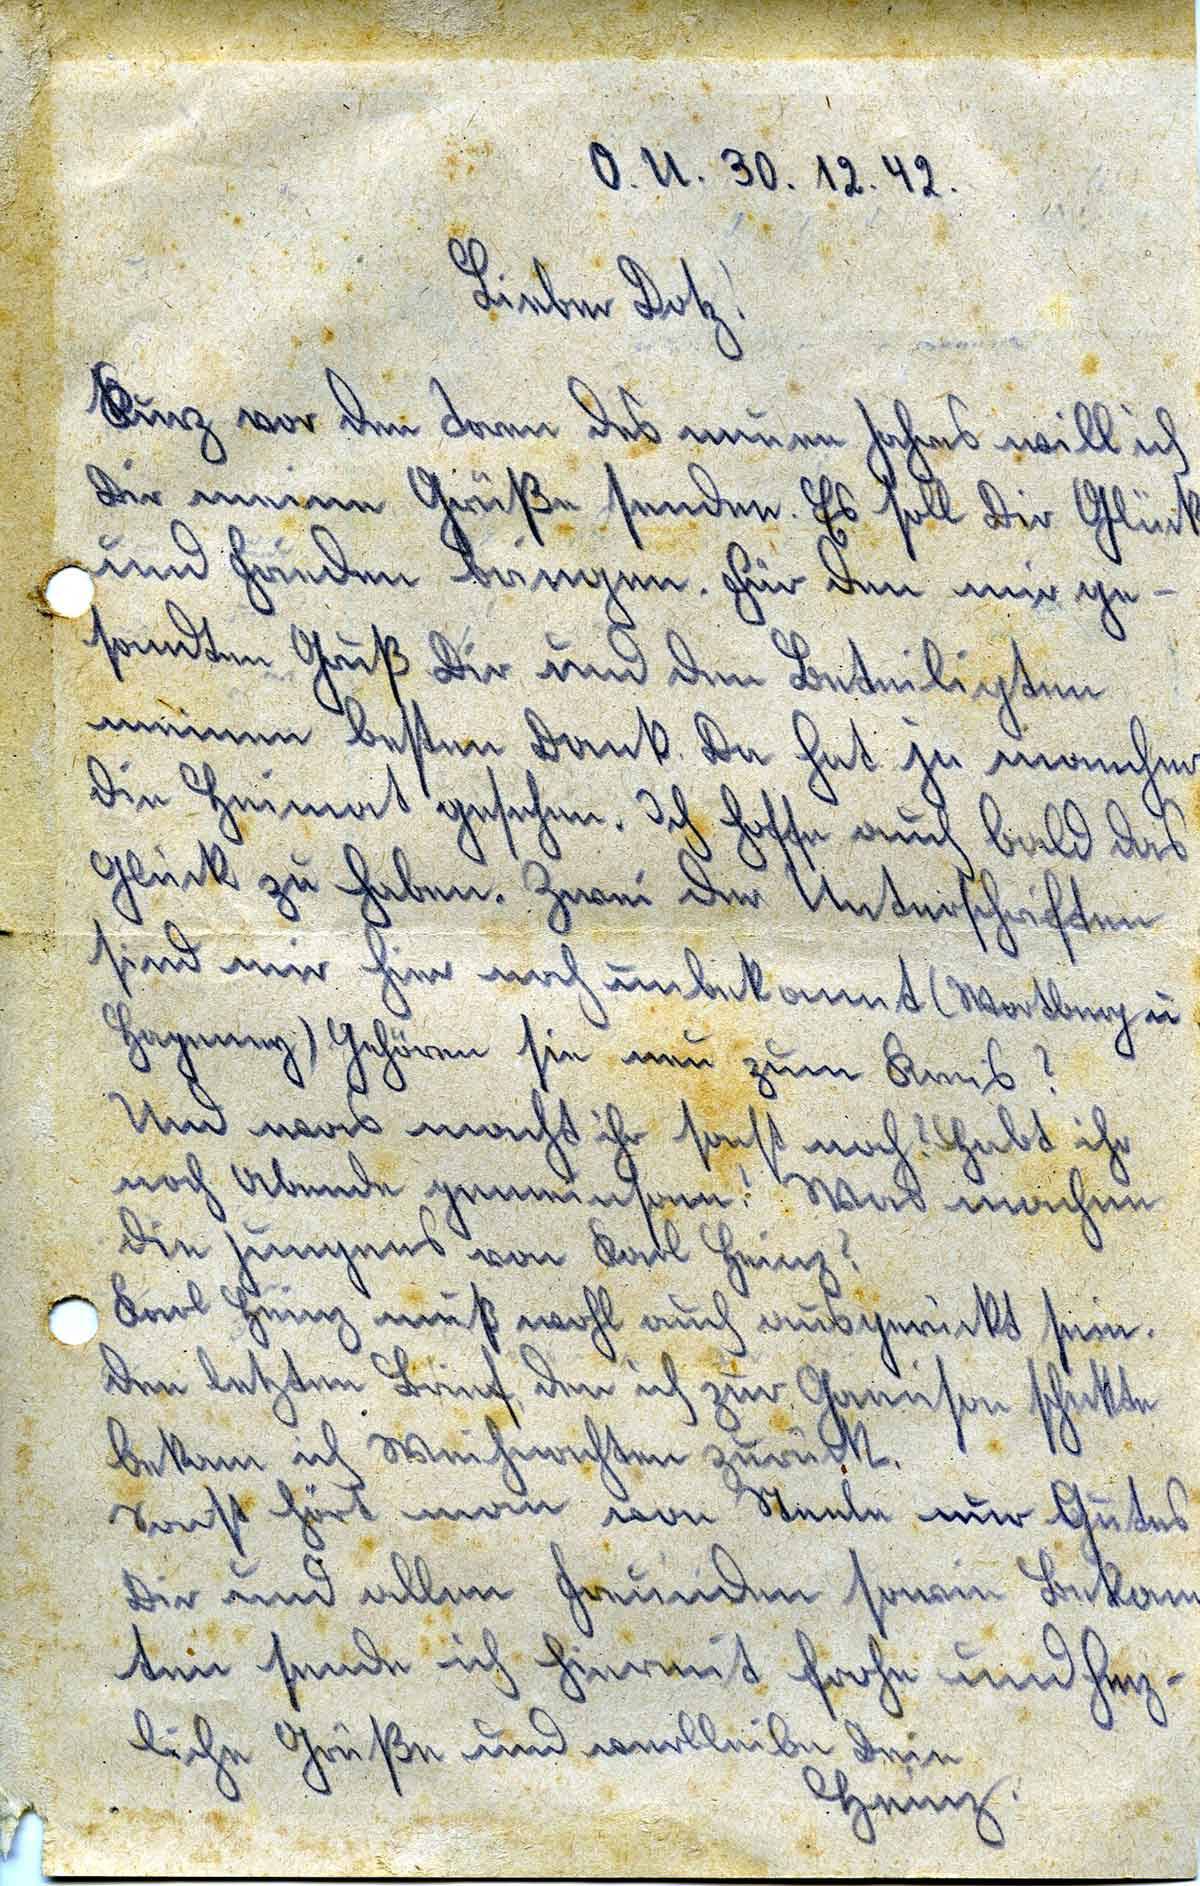 O.U. 30.12.42.
Lieber Dotz!
Kurz vor den Toren des neuen Jahres will ich
Dir meine Grüße senden. Es soll Dir Glück
und Frieden bringen. Für den mir ge-
sandten Gruß Dir und den Beteiligten
meinen besten Dank. Da hat ja mancher
die Heimat gesehen. Ich hoffe auch bald das
Glück zu haben. Zwei der Unterschriften
sind mir hier noch unbekannt (Wartberg u
Hageney) Gehören sie neu zum Kreis?
Und was macht ihr sonst noch? Habt ihr
noch Abende gemeinsam? Was machen
die Jungens von Karl Heinz?
Karl Heinz muß wohl auch ausgerückt sein.
Den letzten Brief, den ich zur Garnison schickte
bekam ich Weihnachten zurück.
Sonst hört man von Steele nur Gutes
Dir und allen Freunden sowie Bekann
ten sende ich hiermit frohe und herz-
liche Grüße und verbleibe Dein
Heinz.